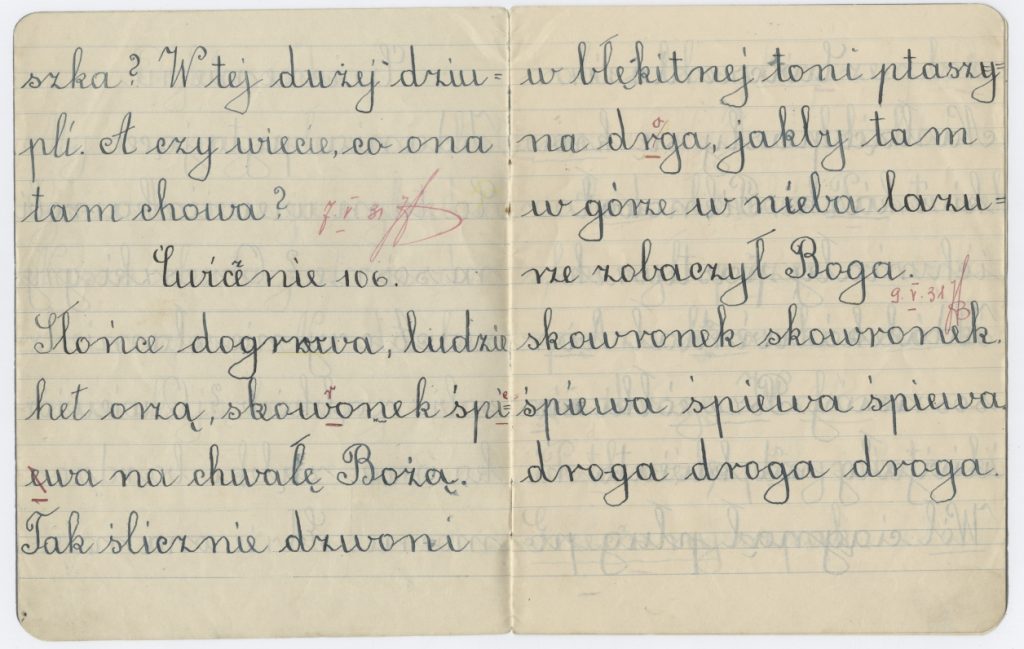 szka? W tej dużej dziu=
pli. A czy wiecie, co ona
tam chowa?
7 V 31
Ćwiczenie 106.
Słońce dogrzewa, ludzie
het orzą, skowronek śpi=
ewa na chwałę Bożą.
Tak ślicznie dzwoni
w błękitnej toni ptaszy=
na droga, jakby tam
w górze w nieba lazu=
rze zobaczył Boga.
9. V. 31
skowronek skowronek.
śpiewa śpiewa śpiewa
droga droga droga.